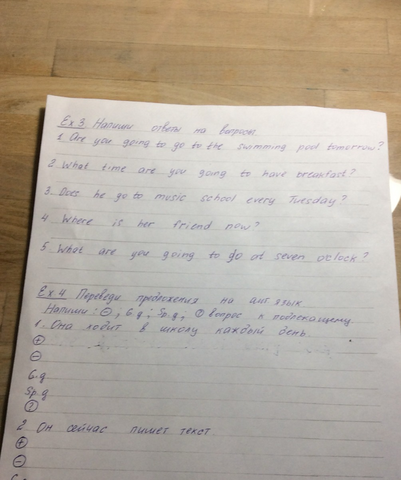 Ex 3 Напиши ответы на вопросы.
1. Are you going to go to the swimming pool tomorrow?
2. What time are you going to have breakfast?
3. Does he go to music school every Tuesday?
4. Where is her friend now?
5. What are you going to go at seven o'clock?
Ex 4 Переведи предложения на анг язык
Напиши: ⊖, G.q; Sp.q, ? вопрос к подлежащему
1. Она ходит в школу каждый день.
+
-
G.q
Sp.q
?
2 Он сейчас пишет текст
+
-